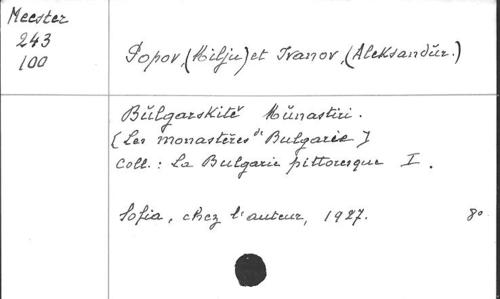 Meester
243
100
Popov, (Milju) et Ivanov, (Aleksandŭr.)
Bŭlgarskitĕ Mŭnastiri.
[Les monastères de Bulgarie]
Coll. : La Bulgarie pittoresque I.
Sofia, chez l'auteur, 1927. 8°